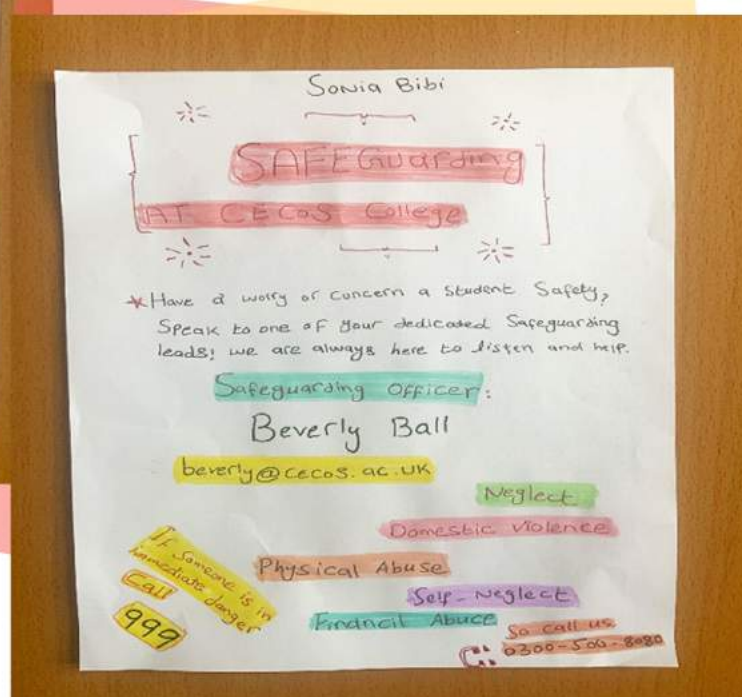 Sonia Bibi
SAFEGuarding
AT CECOS College
*Have a worry or concern a student Safety,
Speak to one of your dedicated Safeguarding
leads! we are always here to listen and help.
Safeguarding Officer:
Beverly Ball
beverly@cecos.ac.uk
Neglect
Domestic Violence
Physical Abuse
Self-Neglect
Financit Abuce
If Someone is in
immediate danger
Call
999
So call us
0300-500-8080